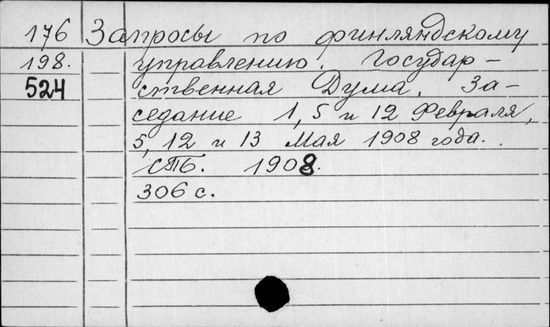 176 Запросы по финляндскому
198. управлению. Государ-
524 ственная Дума. За-
седание 1, 5 и 12 Февраля,
5, 12 и 13 Мая 1908 года.
СПБ. 1908.
306 с.